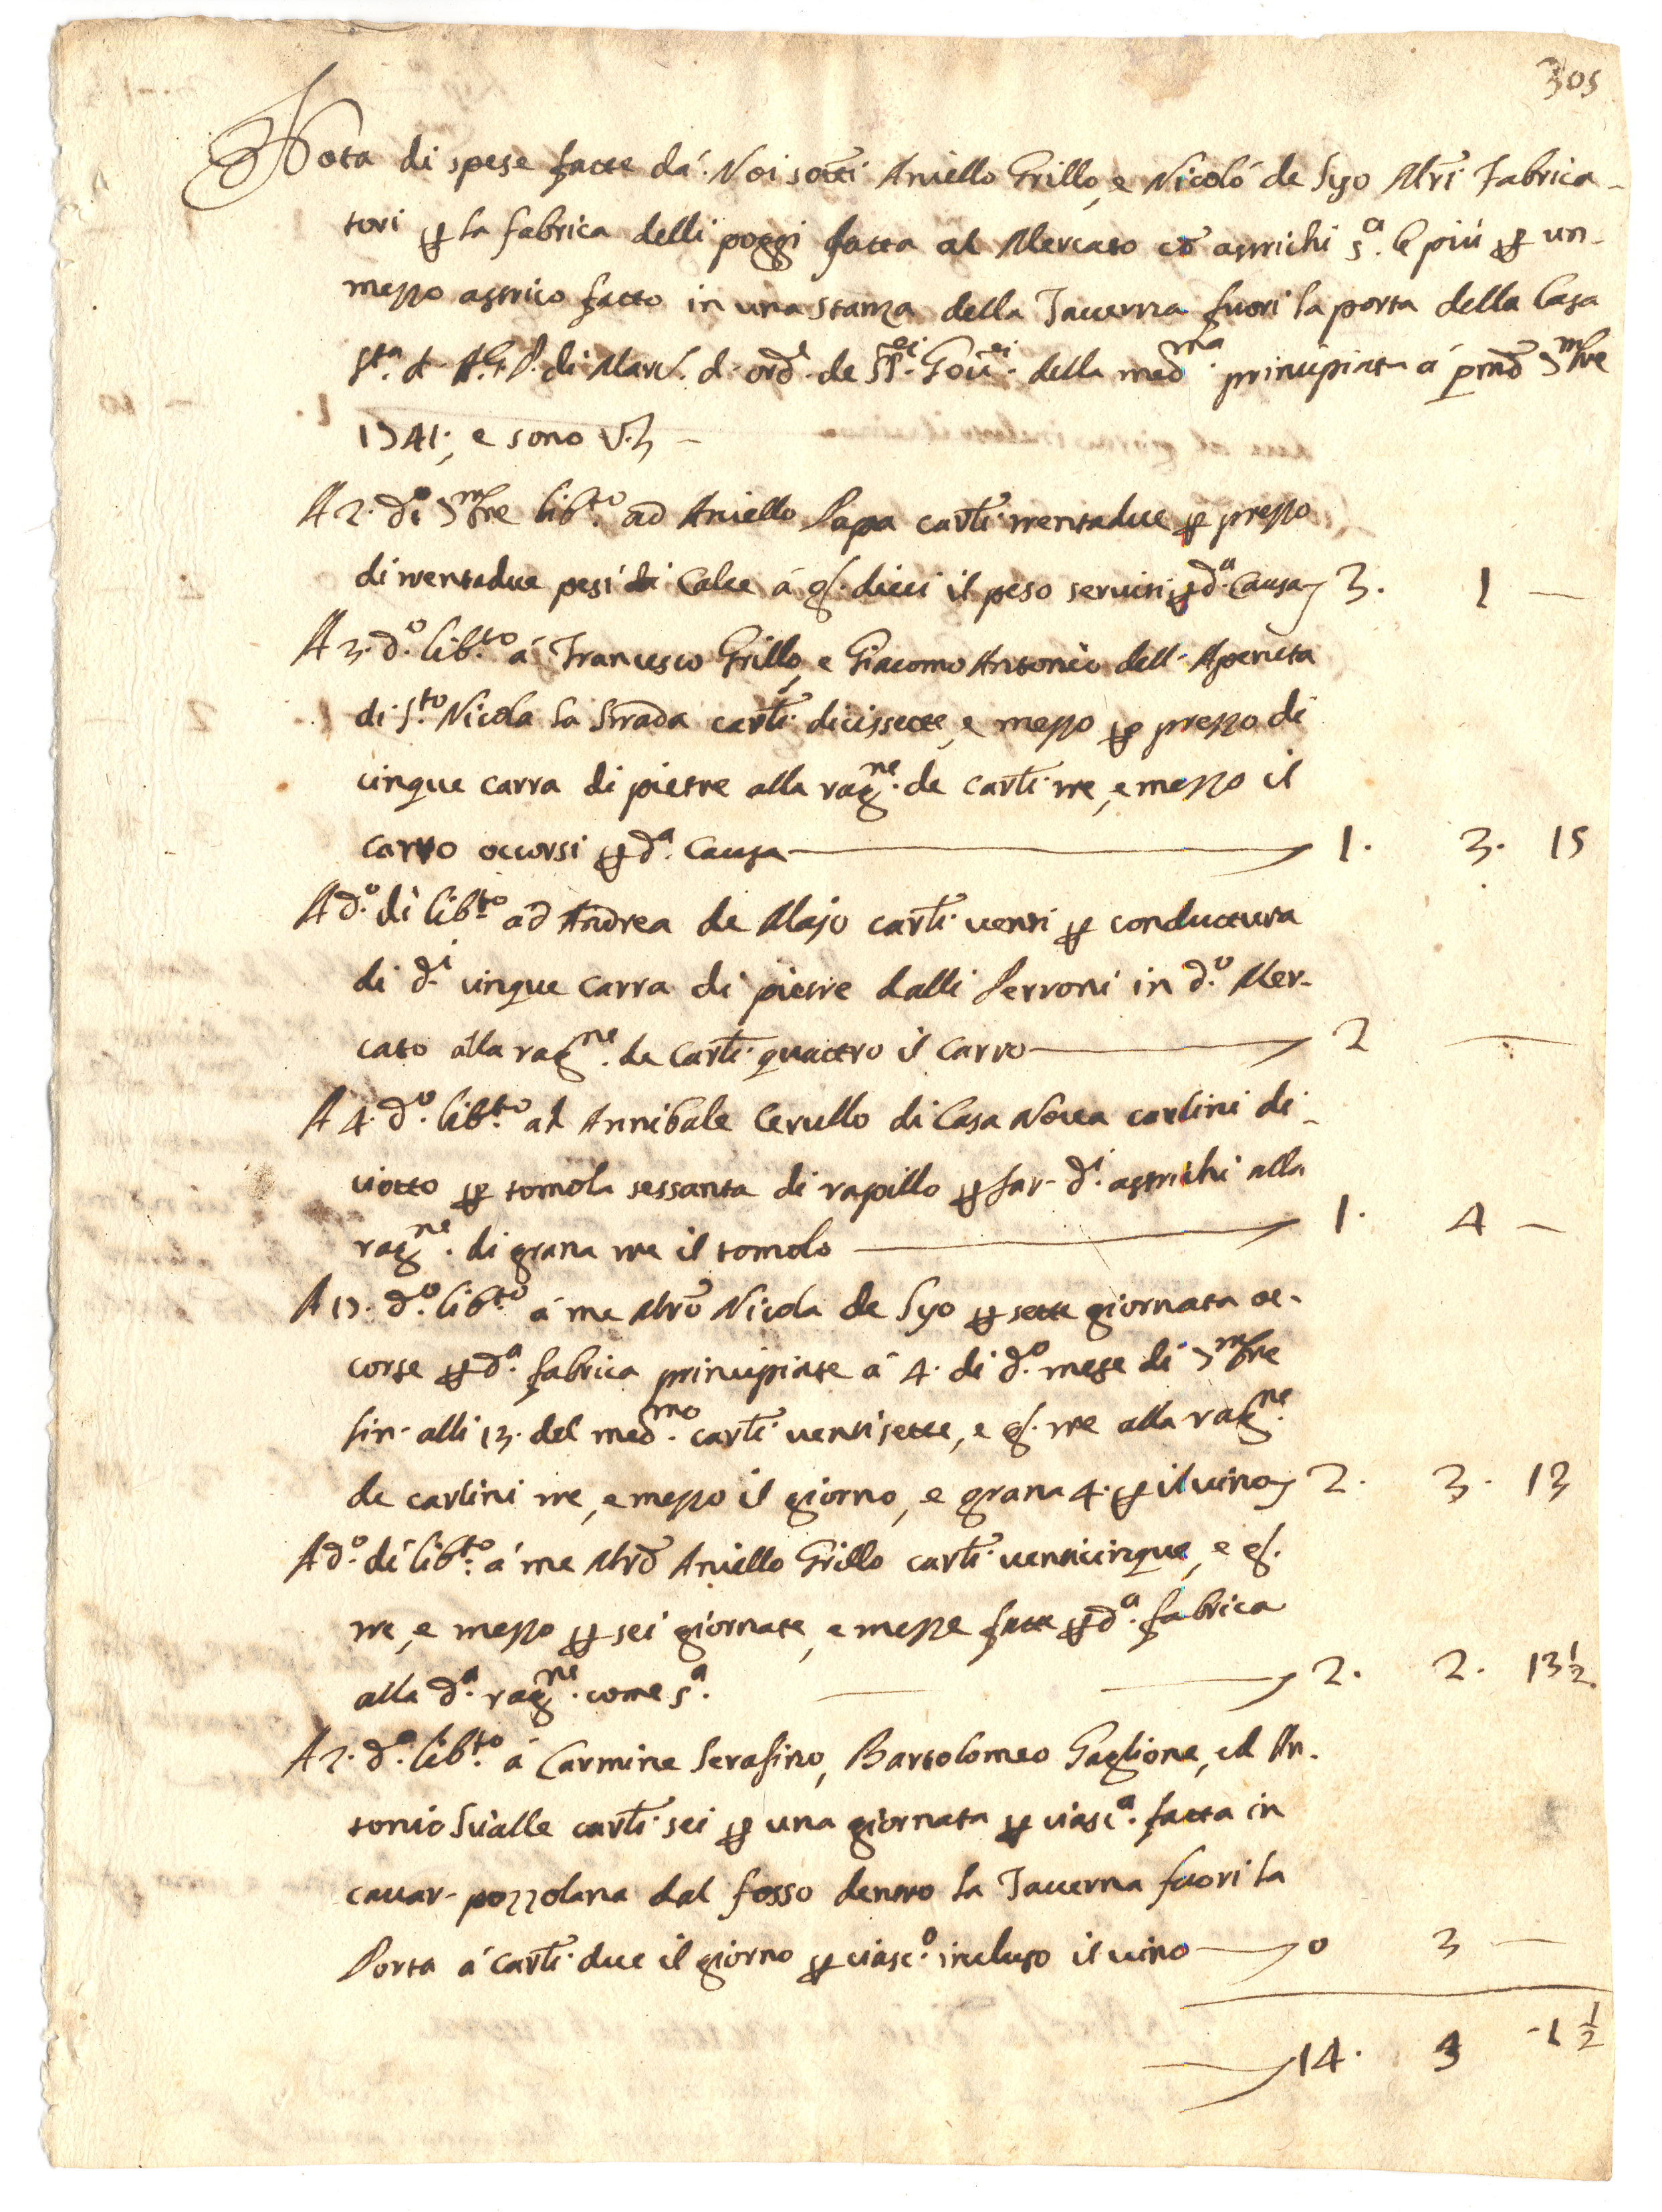 305
Nota di spese fatte dá Noi sotti Aniello Grillo, e Nicoló de Syo Mri Fabrica-
tori ꝑ la fabrica delli poggi fatta al Mercato cō astrichi s.a e piú ꝑ un-
mezzo astrico fatto in una stanza della Taverna fuori la porta della Casa
S.ta d. A.G.P. di Mard. d. ord.e de SS.ri Gov.ri della med.ma principiata á pmo 7mbre
1741; e sono V.z -
A 2. d.o 7mbre lib.to ad Aniello Papa carli trentadue ꝑ prezzo
di trentadue pesi di Calce á g. dieci il peso serviti ꝑ d.a Causa 3. 1 —
A 3. d.o lib.to á Francesco Grillo, e Giacomo Antonio dell' Aperuta
di S.to Nicola la Strada carli dicissette, e mezzo ꝑ prezzo di
cinque carra di pietre alla rag.ne de carli tre, e mezzo il
carro occorsi ꝑ d.a Causa 1. 3. 15
A d.o dì lib.to ad Andrea de Majo carli venti ꝑ conduttura
di d.i cinque carra di pietre dalli Perroni in d.o Mer-
cato alla rag.ne de Carli quattro il Carro 2 —
A 4. d.o lib.to ad Annibale Cerullo di Casa Nova carlini di-
ciotto ꝑ tomola sessanta di rapillo ꝑ far- d.i astrichi alla
rag.ne di grana tre il tomolo 1. 4 —
A 13. d.o lib.to á me Mro Nicola de Syo ꝑ sette giornata oc-
corse ꝑ d.a fabrica principiate á 4. di d.o mese di 7mbre
fin- alli 13. del med.mo carli ventisette, e g. tre alla rag.ne
de carlini tre, e mezzo il giorno, e grana 4. ꝑ il vino 2. 3. 13
A d.o dí lib.to á me Mro Aniello Grillo carli venticinque, e g.
tre, e mezzo ꝑ sei giornate, e mezze fatte ꝑ d.a fabrica
alla d.a rag.ne come s.a 2. 2. 13½.
A 2. d.o lib.to á Carmine Serafino, Bartolomeo Gaglione, ed An-
tonio Svialle carli sei ꝑ una giornata ꝑ ciasc.a fatta in
cavar- pozzolana dal fosso dentro la Taverna fuori la
Porta á carli due il giorno ꝑ ciasc.o incluso il vino 0 3 —
14. 3 -1½